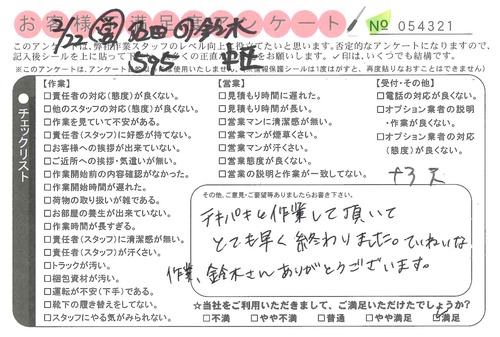 お客様満足度アンケート
№ 054321
2/22 ㊡ 沼田の鈴木
595
このアンケートは、弊社作業スタッフのレベル向上に役立てたいと思います。否定的なアンケートになりますので、
記入後シールを上に貼って下
多くの正直
お願いします。✓印は、いくつでも結構です。
※このアンケートは、
使用いたしません。
保護シールは1度がすと、再度貼りなおすことはできません)
チェックリスト
【作業】
□責任者の対応(態度)が良くない。
□他のスタッフの対応(態度)が良くない。
□作業を見ていて不安がある。
□責任者(スタッフ)に好感が持てない。
□お客様への挨拶が出来ていない。
□ご近所への挨拶・気遣いが無い。
□作業開始前の内容確認がなかった。
□作業開始時間が遅れた。
□荷物の取り扱いが雑である。
□お部屋の養生が出来ていない。
□作業時間が長すぎる。
□責任者(スタッフ)に清潔感が無い。
□責任者(スタッフ)が汗くさい。
□トラックが汚い。
□梱包資材が汚い。
□運転が不安(下手)である。
□靴下の履き替えをしてない。
□スタッフにやる気がみられない。
【営業】
□見積もり時間に遅れた。
□見積もり時間が長い。
□営業マンに清潔感が無い。
□営業マンが煙草くさい。
□営業マンが汗くさい。
□営業態度が良くない。
□営業の説明と作業が一致してない。
【受付・その他】
□電話の対応が良くない。
□オプション業者の説明
・作業が良くない。
□オプション業者の対応
(態度)が良くない。
その他、ご意見・ご要望等ありましたらお書き下さい。
テキパキと作業して頂いて
とても早く終わりました。ていねいな
作業、鈴木さんありがとうございます。
☆当社をご利用いただきまして、ご満足いただけたでしょうか?
□不満 □やや不満 □普通 □やや満足 ☑満足